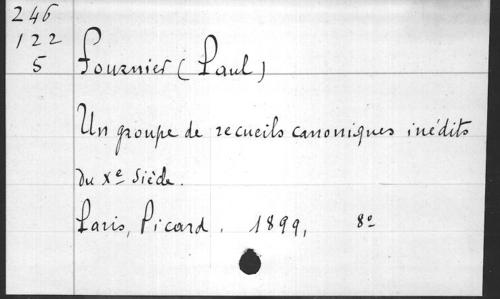 246
122
5
Fournier (Paul)
Un groupe de recueils canoniques inédits
du Xe Siècle.
Paris, Picard. 1899, 8º